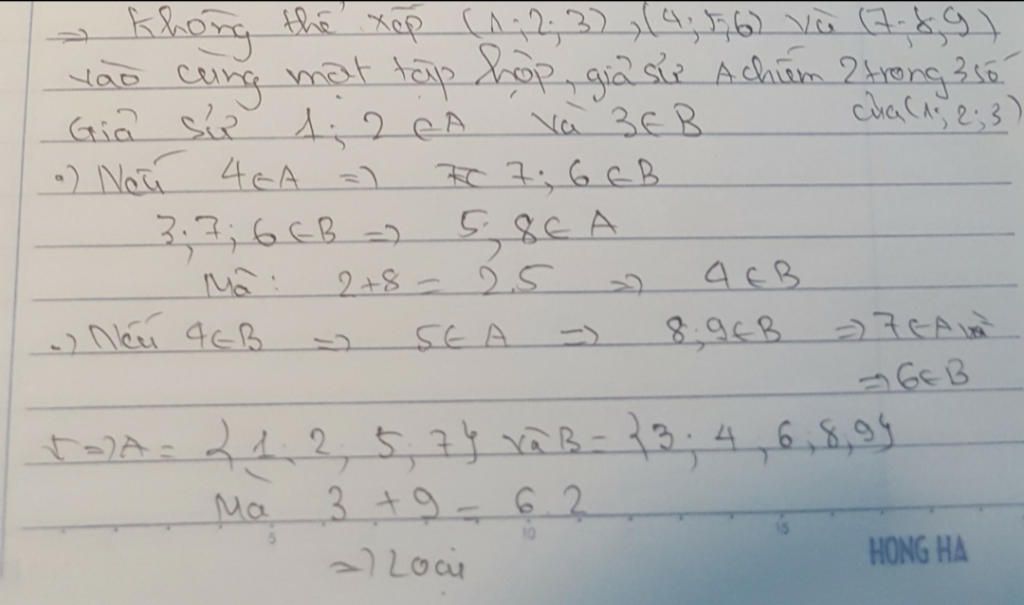 => Không thể xếp (1;2;3),(4;5;6) và (7;8;9)
vào cùng một tập hợp, giả sử A chiếm 2 trong 3 số
của (1;2;3)
Giả sử 1; 2 ∈ A và 3 ∈ B
•) Nếu 4 ∈ A => 7; 6 ∈ B
3; 7; 6 ∈ B => 5; 8 ∈ A
Mà: 2+8 = 2.5 => 4 ∈ B
•) Nếu 4 ∈ B => 5 ∈ A => 8; 9 ∈ B => 7 ∈ A và
=> 6 ∈ B
=> A = {1; 2; 5; 7} và B = {3; 4; 6; 8; 9}
Mà 3 + 9 = 6.2
=> Loại
5 10 15
HONG HA